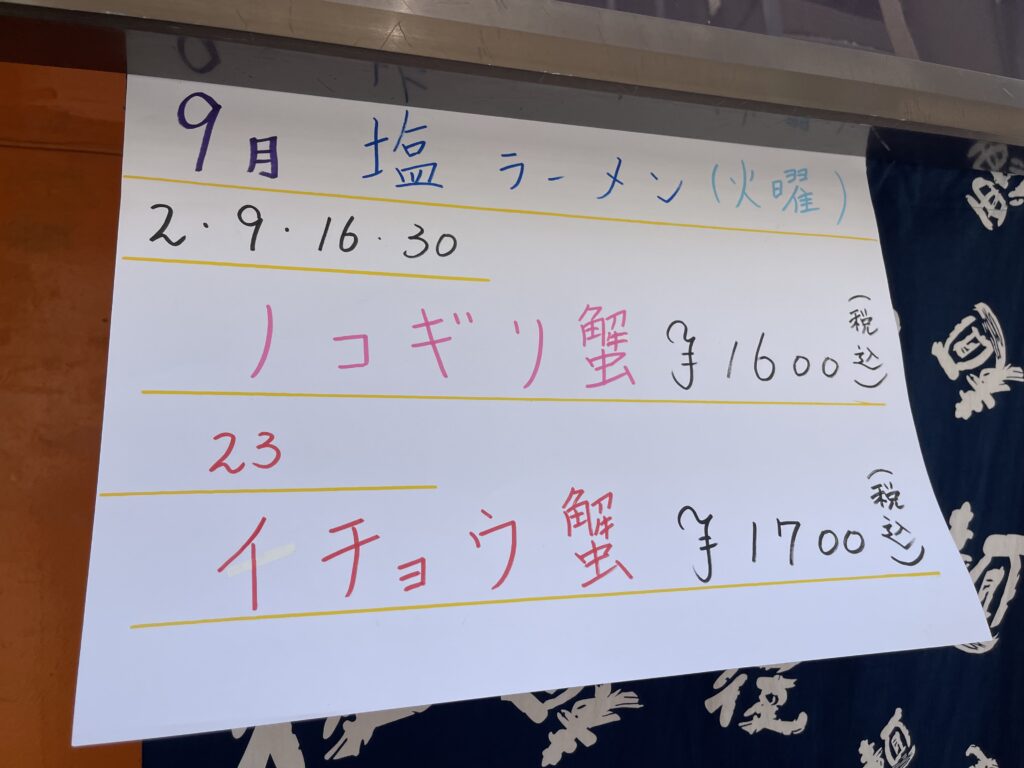 9月 塩 ラーメン (火曜)
2・9・16・30
ノコギリ蟹 ¥1600(税込)
23
イチョウ蟹 ¥1700(税込)